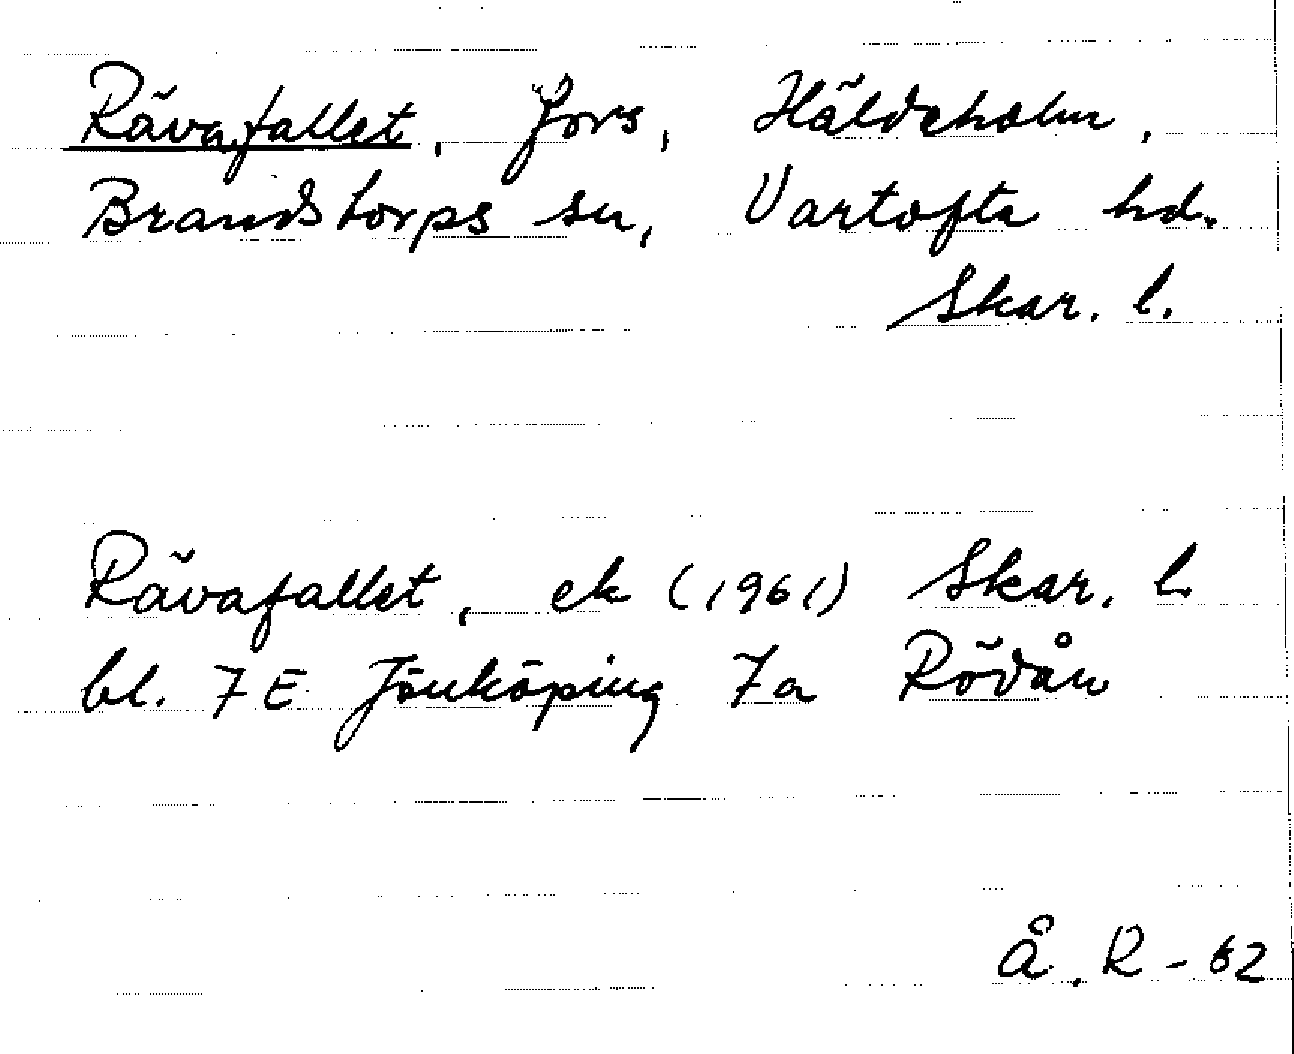 Rävafallet, fors, Häldeholm,
Brandstorps sn, Vartofta hd.
Skar. l.
Rävafallet, ek (1961) Skar. l.
bl. 7 E Jönköping 7a Rödån
Å. R - 62